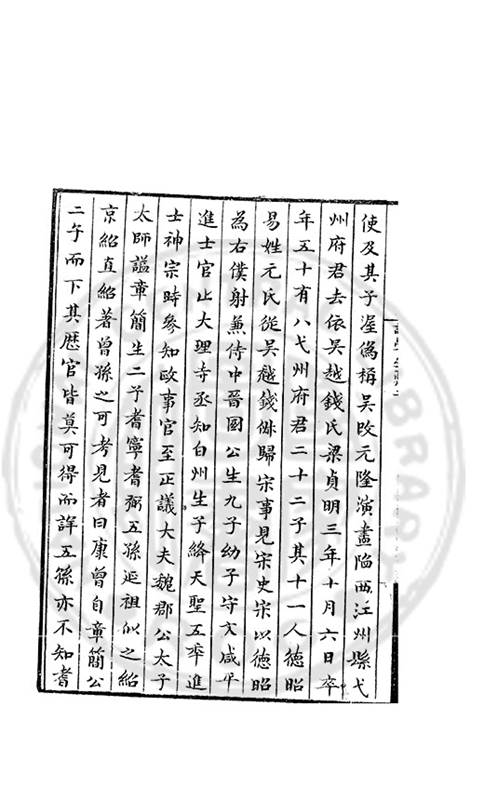 使及其子渥僞稱吳改元隆演盡陷西江州縣弋
州府君去依吳越錢氏梁貞明三年十月六日卒
年五十有八弋州府君二十二子其十一人德昭
易姓元氏從吳越錢俶歸宋事見宋史宋以德昭
為右僕射兼侍中晉國公生九子幼子守文咸平
進士官止大理寺丞知白州生子絳天聖五年進
士神宗時參知政事官至正議大夫魏郡公太子
太師諡章簡生二子耆寧耆弼五孫延祖似之紹
京紹直紹著曾孫之可考見者曰康曾自章簡公
二子而下其歷官皆莫可得而詳五孫亦不知耆